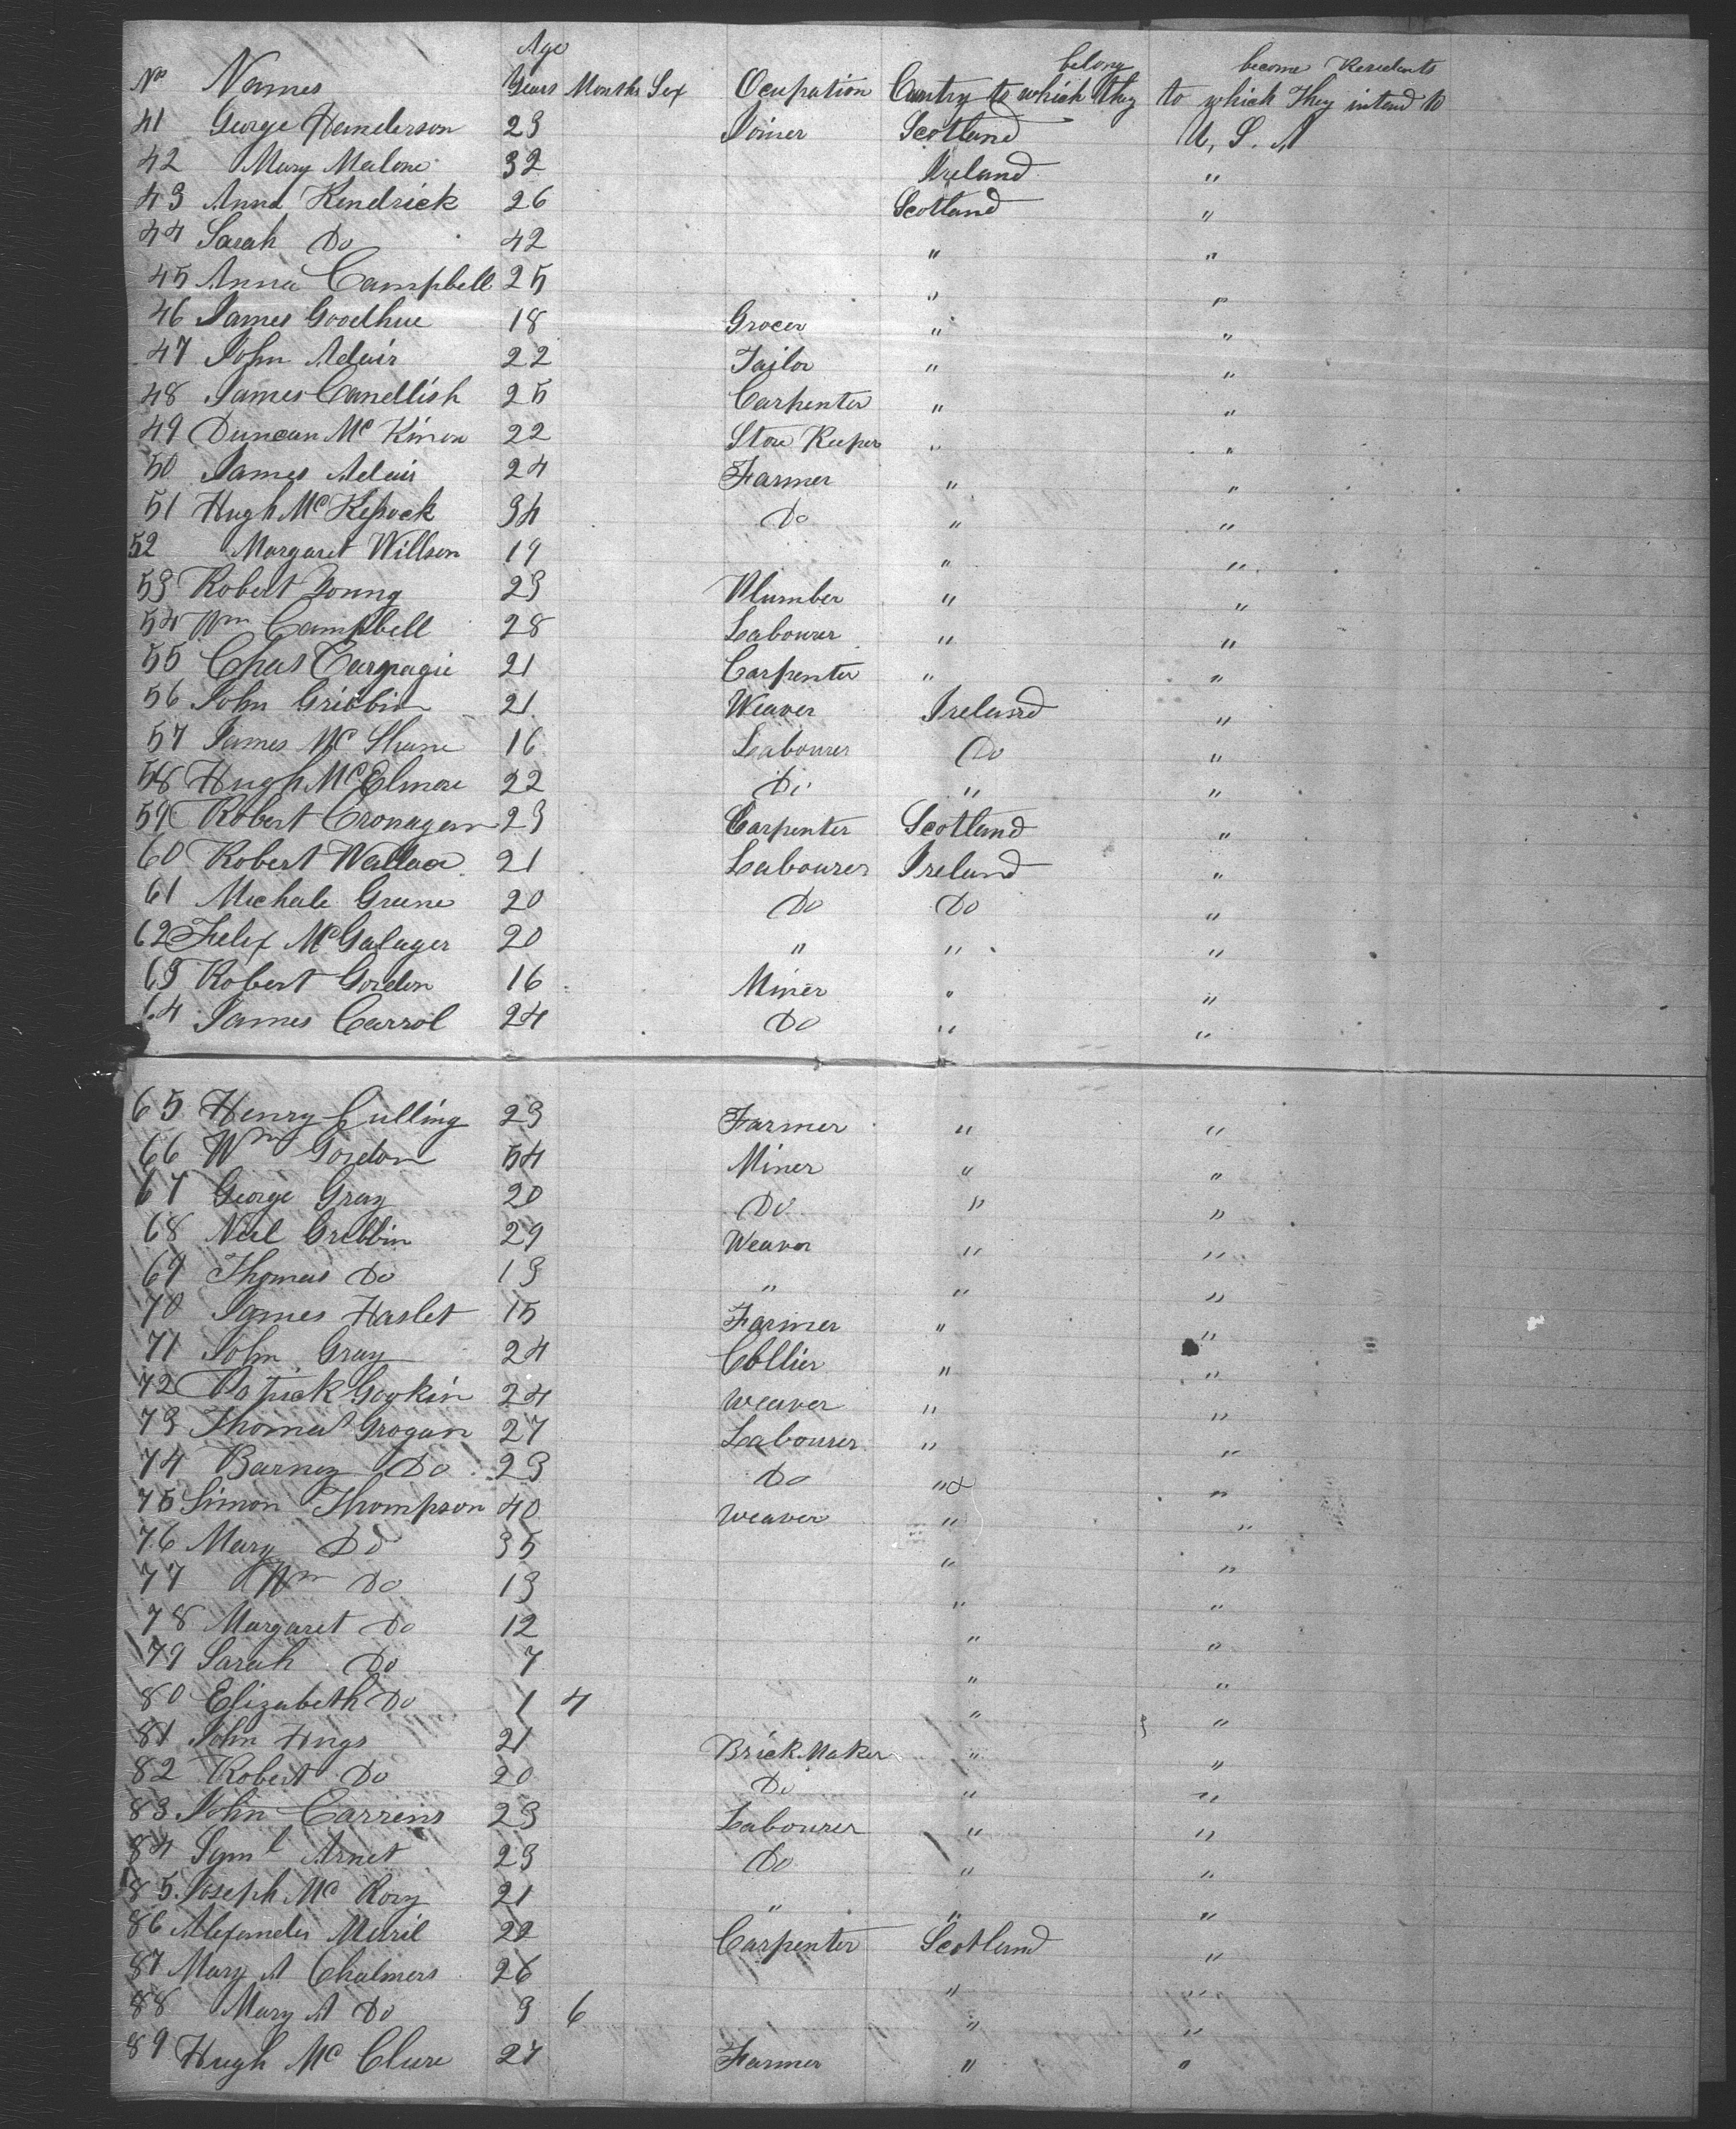 Age belong become Residents
No Names Years Months Sex Ocupation Cuntry to which they to which They intend to
41 George Henderson 23 Joiner Scotland U. S. A
42 Mary Malone 32 Ireland "
43 Anna Kendrick 26 Scotland "
44 Sarah Do 42 " "
45 Anna Campbell 25 " "
46 James Goodhue 18 Grocer " "
47 John Adair 22 Tailor " "
48 James Candlish 25 Carpenter " "
49 Duncan Mc Kinon 22 Store Keeper " "
50 James Adair 24 Farmer " "
51 Hugh Mc 34 Do " "
52 Margaret Willson 19 " "
53 Robert Young 23 Plumber " "
54 Wm Campbell 28 Labourer " "
55 Chas Carnagie 21 Carpenter " "
56 John Gribbin 21 Weaver Ireland "
57 James Mc Shane 16 Labourer Do "
58 Hugh Mc Elmore 22 Do " "
59 Robert Cronagem 23 Carpenter Scotland "
60 Robert Wallace 21 Labourer Ireland "
61 Michale Greene 20 Do Do "
62 Felix Mc Galager 20 " " "
63 Robert Gordon 16 Miner " "
64 James Carrol 24 Do " "
65 Henry Culling 23 Farmer " "
66 Wm Gordon 54 Miner " "
67 George Gray 20 Do " "
68 Neil Gribbin 29 Weaver " "
69 Thomas Do 13 " " "
70 James Haslet 15 Farmer " "
71 John Gray 24 Collier " "
72 Patrick Goykin 24 Weaver " "
73 Thomas Grogan 27 Labourer " "
74 Barney Do 23 Do " "
75 Simon Thompson 40 Weaver " "
76 Mary Do 35 " "
77 Wm Do 13 " "
78 Margaret Do 12 " "
79 Sarah Do 7 " "
80 Elizabeth Do 1 4 " "
81 John Hugs 21 Brick Maker " "
82 Robert Do 20 Do " "
83 John Carrens 23 Labourer " "
84 Saml Arnet 23 Do " "
85 Joseph Mc Rory 21 " " "
86 Alexander Muril 22 Carpenter Scotland "
87 Mary A Chalmers 26 " "
88 Mary A Do 3 6 " "
89 Hugh Mc Clure 27 Farmer " "